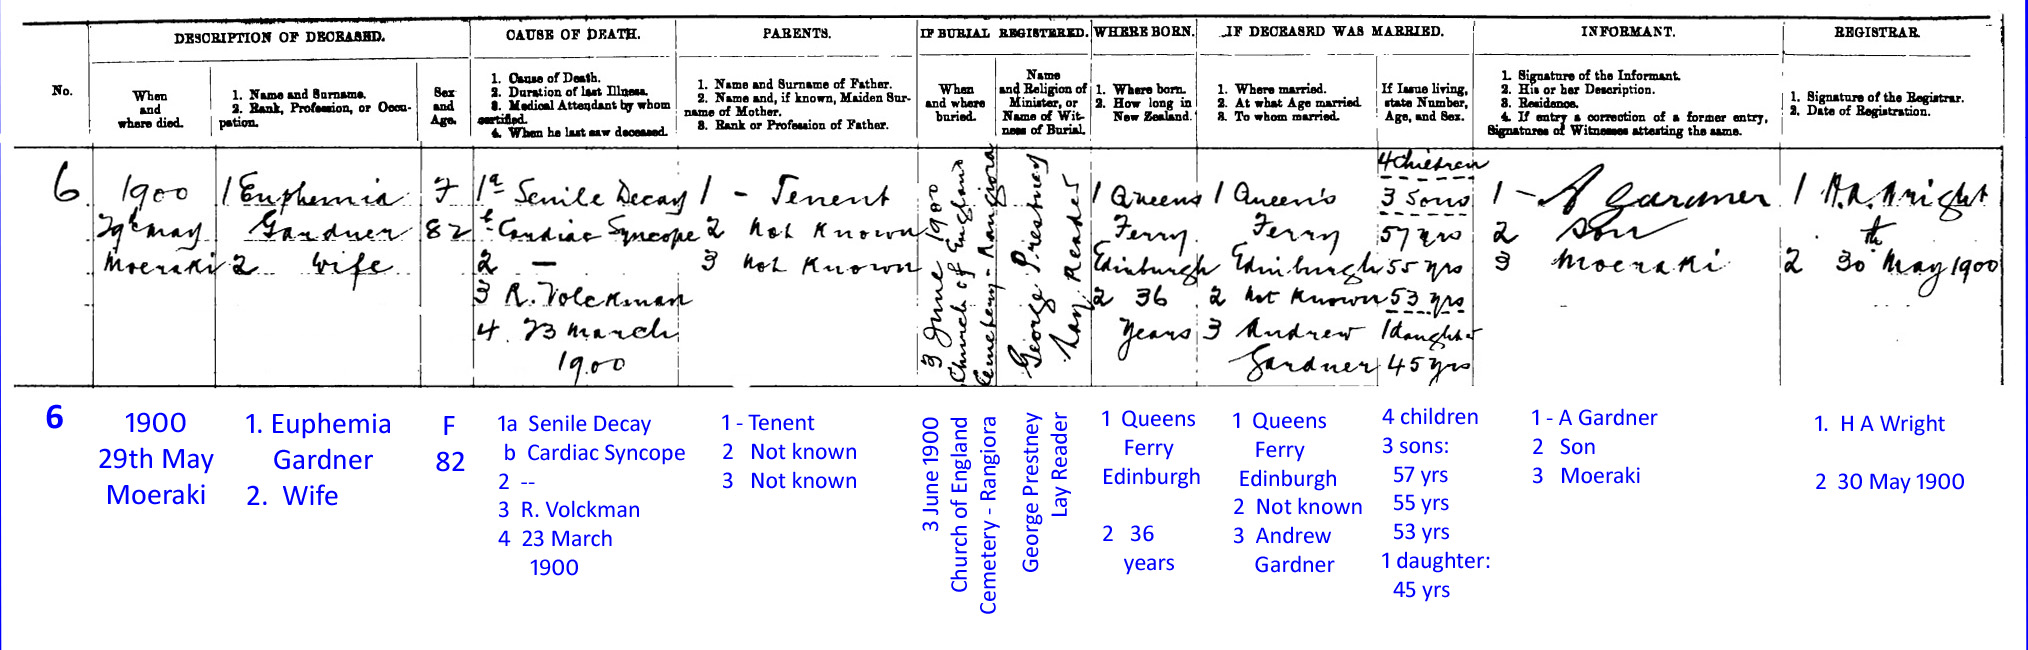 DESCRIPTION OF DECEASED.
CAUSE OF DEATH.
PARENTS.
IF BURIAL REGISTERED.
WHERE BORN.
IF DECEASED WAS MARRIED.
INFORMANT.
REGISTRAR.
No.
When
and
where died.
1. Name and Surname.
2. Rank, Profession, or Occu-
pation.
Sex
and
Age.
1. Cause of Death.
2. Duration of last Illness.
3. Medical Attendant by whom
certified.
4. When he last saw deceased.
1. Name and Surname of Father.
2. Name and, if known, Maiden Sur-
name of Mother.
3. Rank or Profession of Father.
When
and where
buried.
Name
and Religion of
Minister, or
Name of Wit-
ness of Burial.
1. Where born.
2. How long in
New Zealand.
1. Where married.
2. At what Age married.
3. To whom married.
If Issue living,
state Number,
Age, and Sex.
1. Signature of the Informant.
2. His or her Description.
3. Residence.
4. If entry a correction of a former entry,
Signatures of Witnesses attesting the same.
1. Signature of the Registrar.
2. Date of Registration.
6
1900
29th May
Moeraki
1 Euphemia
Gardner
2 Wife
F
82
1a Senile Decay
b Cardiac Syncope
2 —
3 R. Volckman
4. 23 March
1900
1 - Tenent
2 Not Known
3 Not Known
3 June 1900
Church of England
Cemetery - Rangiora
George Prestney
Lay Reader
1 Queens
Ferry.
Edinburgh
2 36
Years
1 Queen's
Ferry
Edinburgh
2 Not Known
3 Andrew
Gardner
4 Children
3 Sons
57 yrs
55 yrs
53 yrs
1 daughter
45 yrs
1 - A Gardner
2 Son
3 Moeraki
1 H.A. Wright
2 30th May 1900
6
1900
29th May
Moeraki
1. Euphemia
Gardner
2. Wife
F
82
1a Senile Decay
b Cardiac Syncope
2 --
3 R. Volckman
4 23 March
1900
1 - Tenent
2 Not known
3 Not known
3 June 1900
Church of England
Cemetery - Rangiora
George Prestney
Lay Reader
1 Queens
Ferry
Edinburgh
2 36
years
1 Queens
Ferry
Edinburgh
2 Not known
3 Andrew
Gardner
4 children
3 sons:
57 yrs
55 yrs
53 yrs
1 daughter:
45 yrs
1 - A Gardner
2 Son
3 Moeraki
1. H A Wright
2 30 May 1900